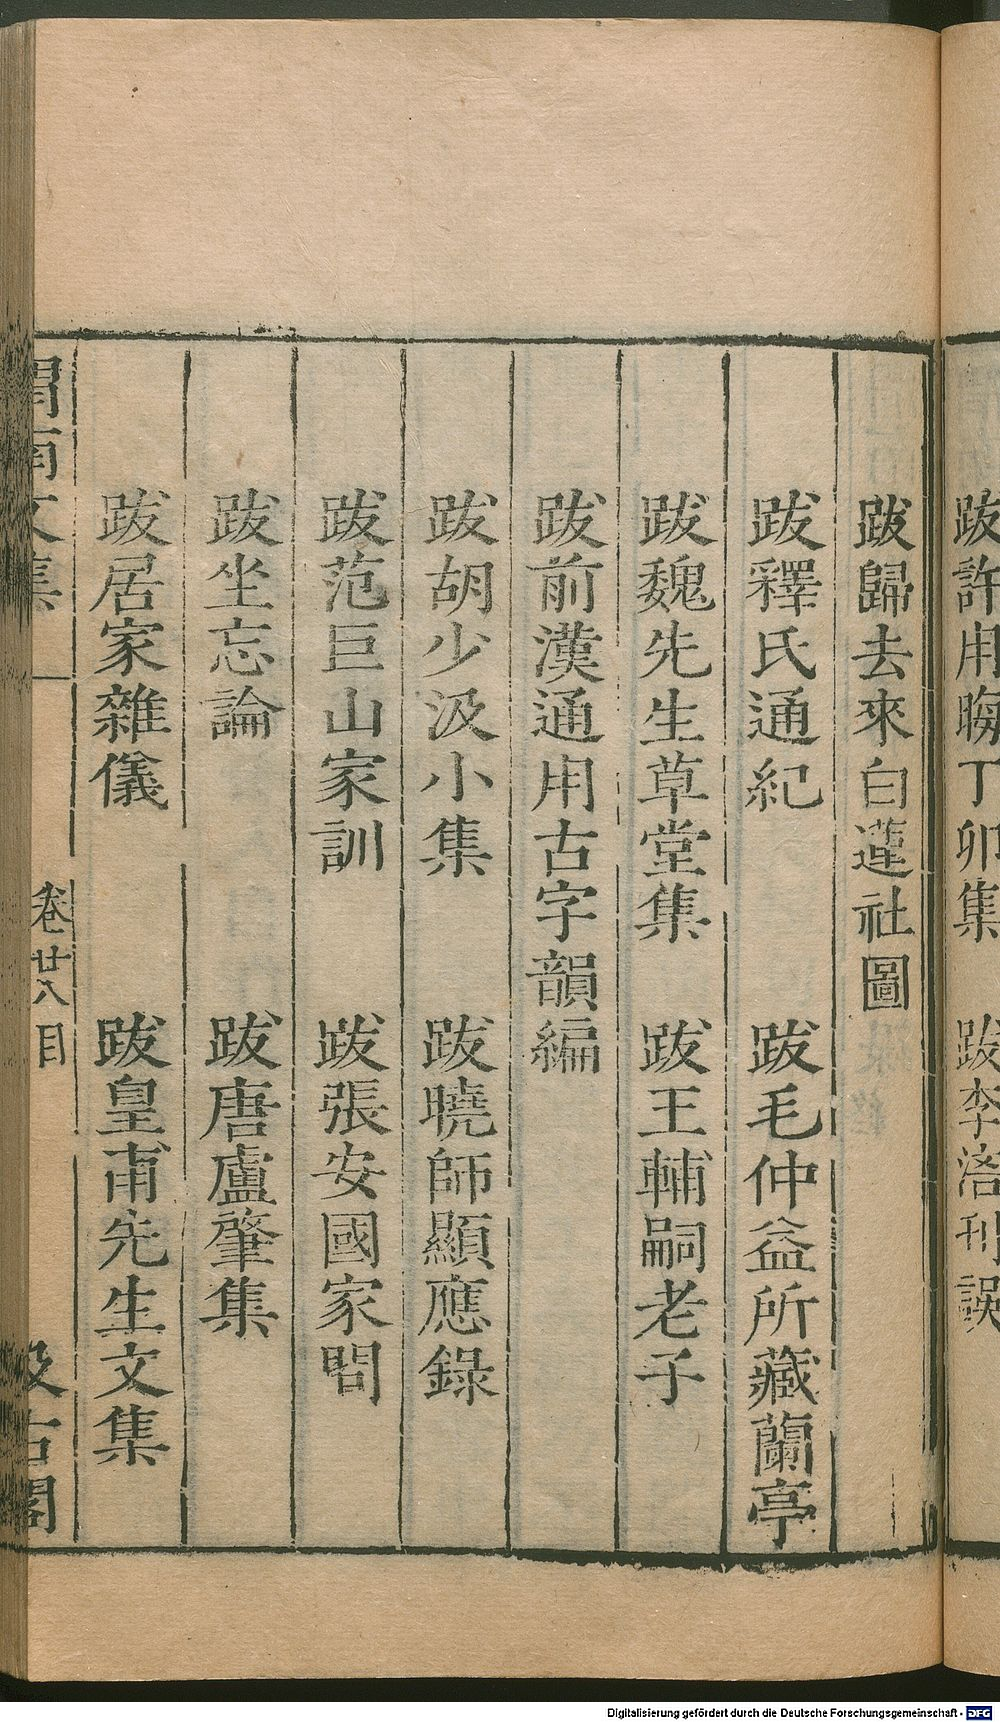 跋許用晦丁卯集　跋李涪刊誤
跋歸去來白蓮社圖
跋釋氏通紀　跋毛仲益所藏蘭亭
跋魏先生草堂集　跋王輔嗣老子
跋前漢通用古字韻編
跋胡少汲小集　跋曉師顯應錄
跋范巨山家訓　跋張安國家問
跋坐忘論　跋唐盧肇集
跋居家雜儀　跋皇甫先生文集
渭南文集　卷廿八目　汲古閣
Digitalisierung gefördert durch die Deutsche Forschungsgemeinschaft - DFG